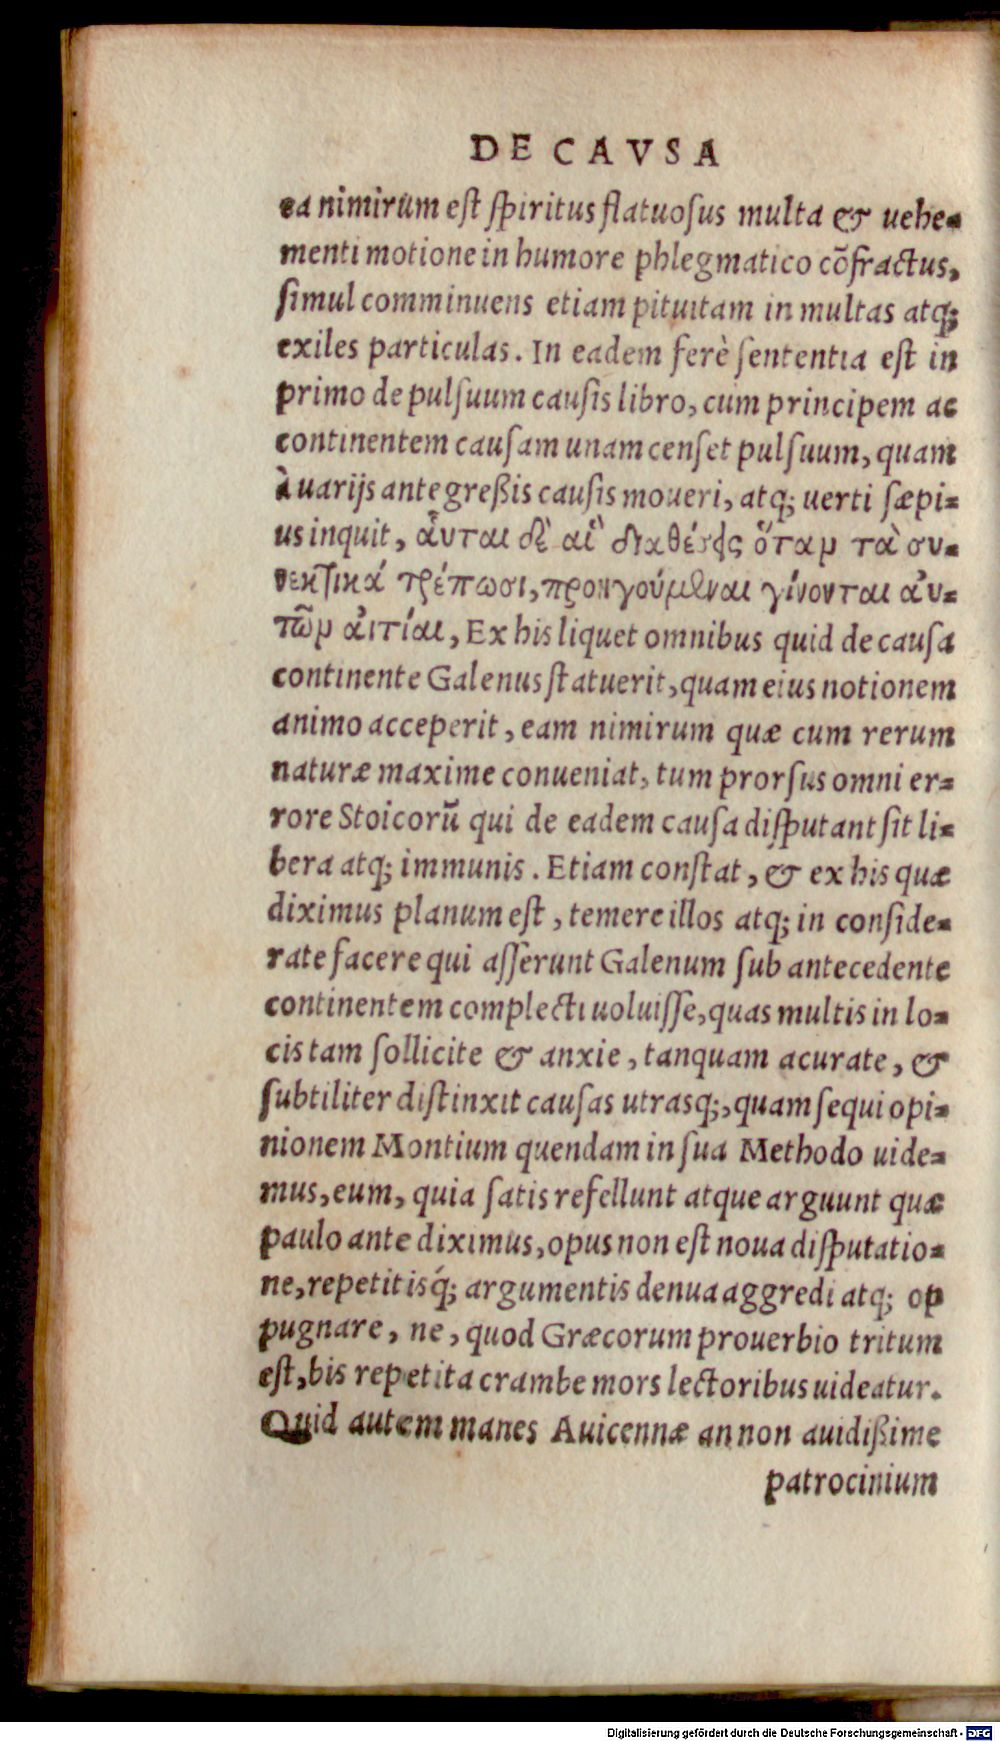 DE CAVSA
ea nimirum est spiritus flatuosus multa & uehe-
menti motione in humore phlegmatico cōfractus,
simul comminuens etiam pituitam in multas atq;
exiles particulas. In eadem ferè sententia est in
primo de pulsuum causis libro, cum principem ac
continentem causam unam censet pulsuum, quam
à uarijs antegreßis causis moueri, atq; uerti sæpi-
us inquit, ἁῦται δὲ αἱ διαθέσεις ὅταν τὰ συ-
νεκτικὰ τρέπωσι, προηγούμεναι γίνονται ἀυ-
τῶν ἀιτίαι, Ex his liquet omnibus quid de causa
continente Galenus statuerit, quam eius notionem
animo acceperit, eam nimirum quæ cum rerum
naturæ maxime conueniat, tum prorsus omni er-
rore Stoicorū qui de eadem causa disputant sit li-
bera atq; immunis. Etiam constat, & ex his quæ
diximus planum est, temere illos atq; in conside-
rate facere qui asserunt Galenum sub antecedente
continentem complecti uoluisse, quas multis in lo-
cis tam sollicite & anxie, tanquam acurate, &
subtiliter distinxit causas utrasq;, quam sequi opi-
nionem Montium quendam in sua Methodo uide-
mus, eum, quia satis refellunt atque arguunt quæ
paulo ante diximus, opus non est noua disputatio-
ne, repetitisq́; argumentis denua aggredi atq; op
pugnare, ne, quod Græcorum prouerbio tritum
est, bis repetita crambe mors lectoribus uideatur.
Quid autem manes Auicennæ an non auidißime
patrocinium
Digitalisierung gefördert durch die Deutsche Forschungsgemeinschaft - DFG